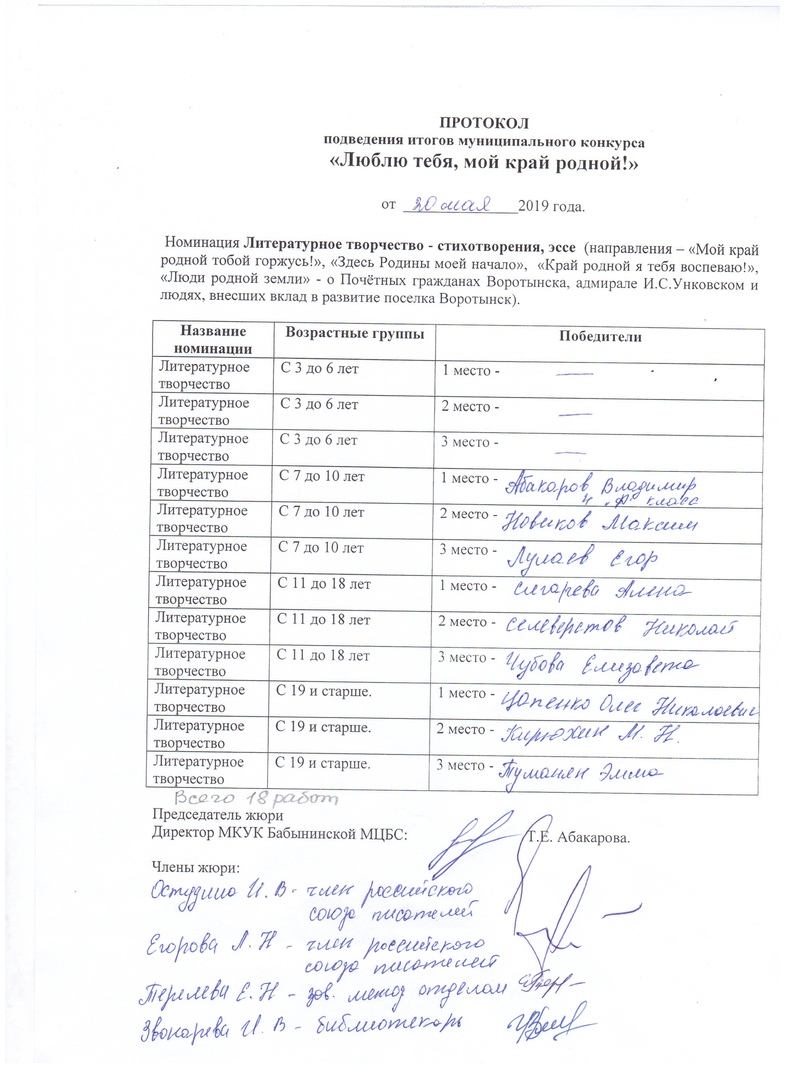 ПРОТОКОЛ
подведения итогов муниципального конкурса
«Люблю тебя, мой край родной!»
от 20 мая 2019 года.
Номинация Литературное творчество - стихотворения, эссе (направления – «Мой край
родной тобой горжусь!», «Здесь Родины моей начало», «Край родной я тебя воспеваю!»,
«Люди родной земли» - о Почётных гражданах Воротынска, адмирале И.С.Унковском и
людях, внесших вклад в развитие поселка Воротынск).
Название номинации Возрастные группы Победители
Литературное творчество С 3 до 6 лет 1 место - —
Литературное творчество С 3 до 6 лет 2 место - —
Литературное творчество С 3 до 6 лет 3 место - —
Литературное творчество С 7 до 10 лет 1 место - Абакаров Владимир 4 "А" класс
Литературное творчество С 7 до 10 лет 2 место - Новиков Максим
Литературное творчество С 7 до 10 лет 3 место - Лулаев Егор
Литературное творчество С 11 до 18 лет 1 место - Сигарева Алена
Литературное творчество С 11 до 18 лет 2 место - Селеверстов Николай
Литературное творчество С 11 до 18 лет 3 место - Чубова Елизавета
Литературное творчество С 19 и старше. 1 место - Цапенко Олег Николаевич
Литературное творчество С 19 и старше. 2 место - Кирюхин М. Н.
Литературное творчество С 19 и старше. 3 место - Туманян Эмма
Всего 18 работ
Председатель жюри
Директор МКУК Бабынинской МЦБС: Т.Е. Абакарова.
Члены жюри:
И. В - член российского
союза писателей
Егорова Л. Н - член российского
союза писателей
Терелева Е. Н - зав. метод отделом
Звонарева И. В - библиотекарь